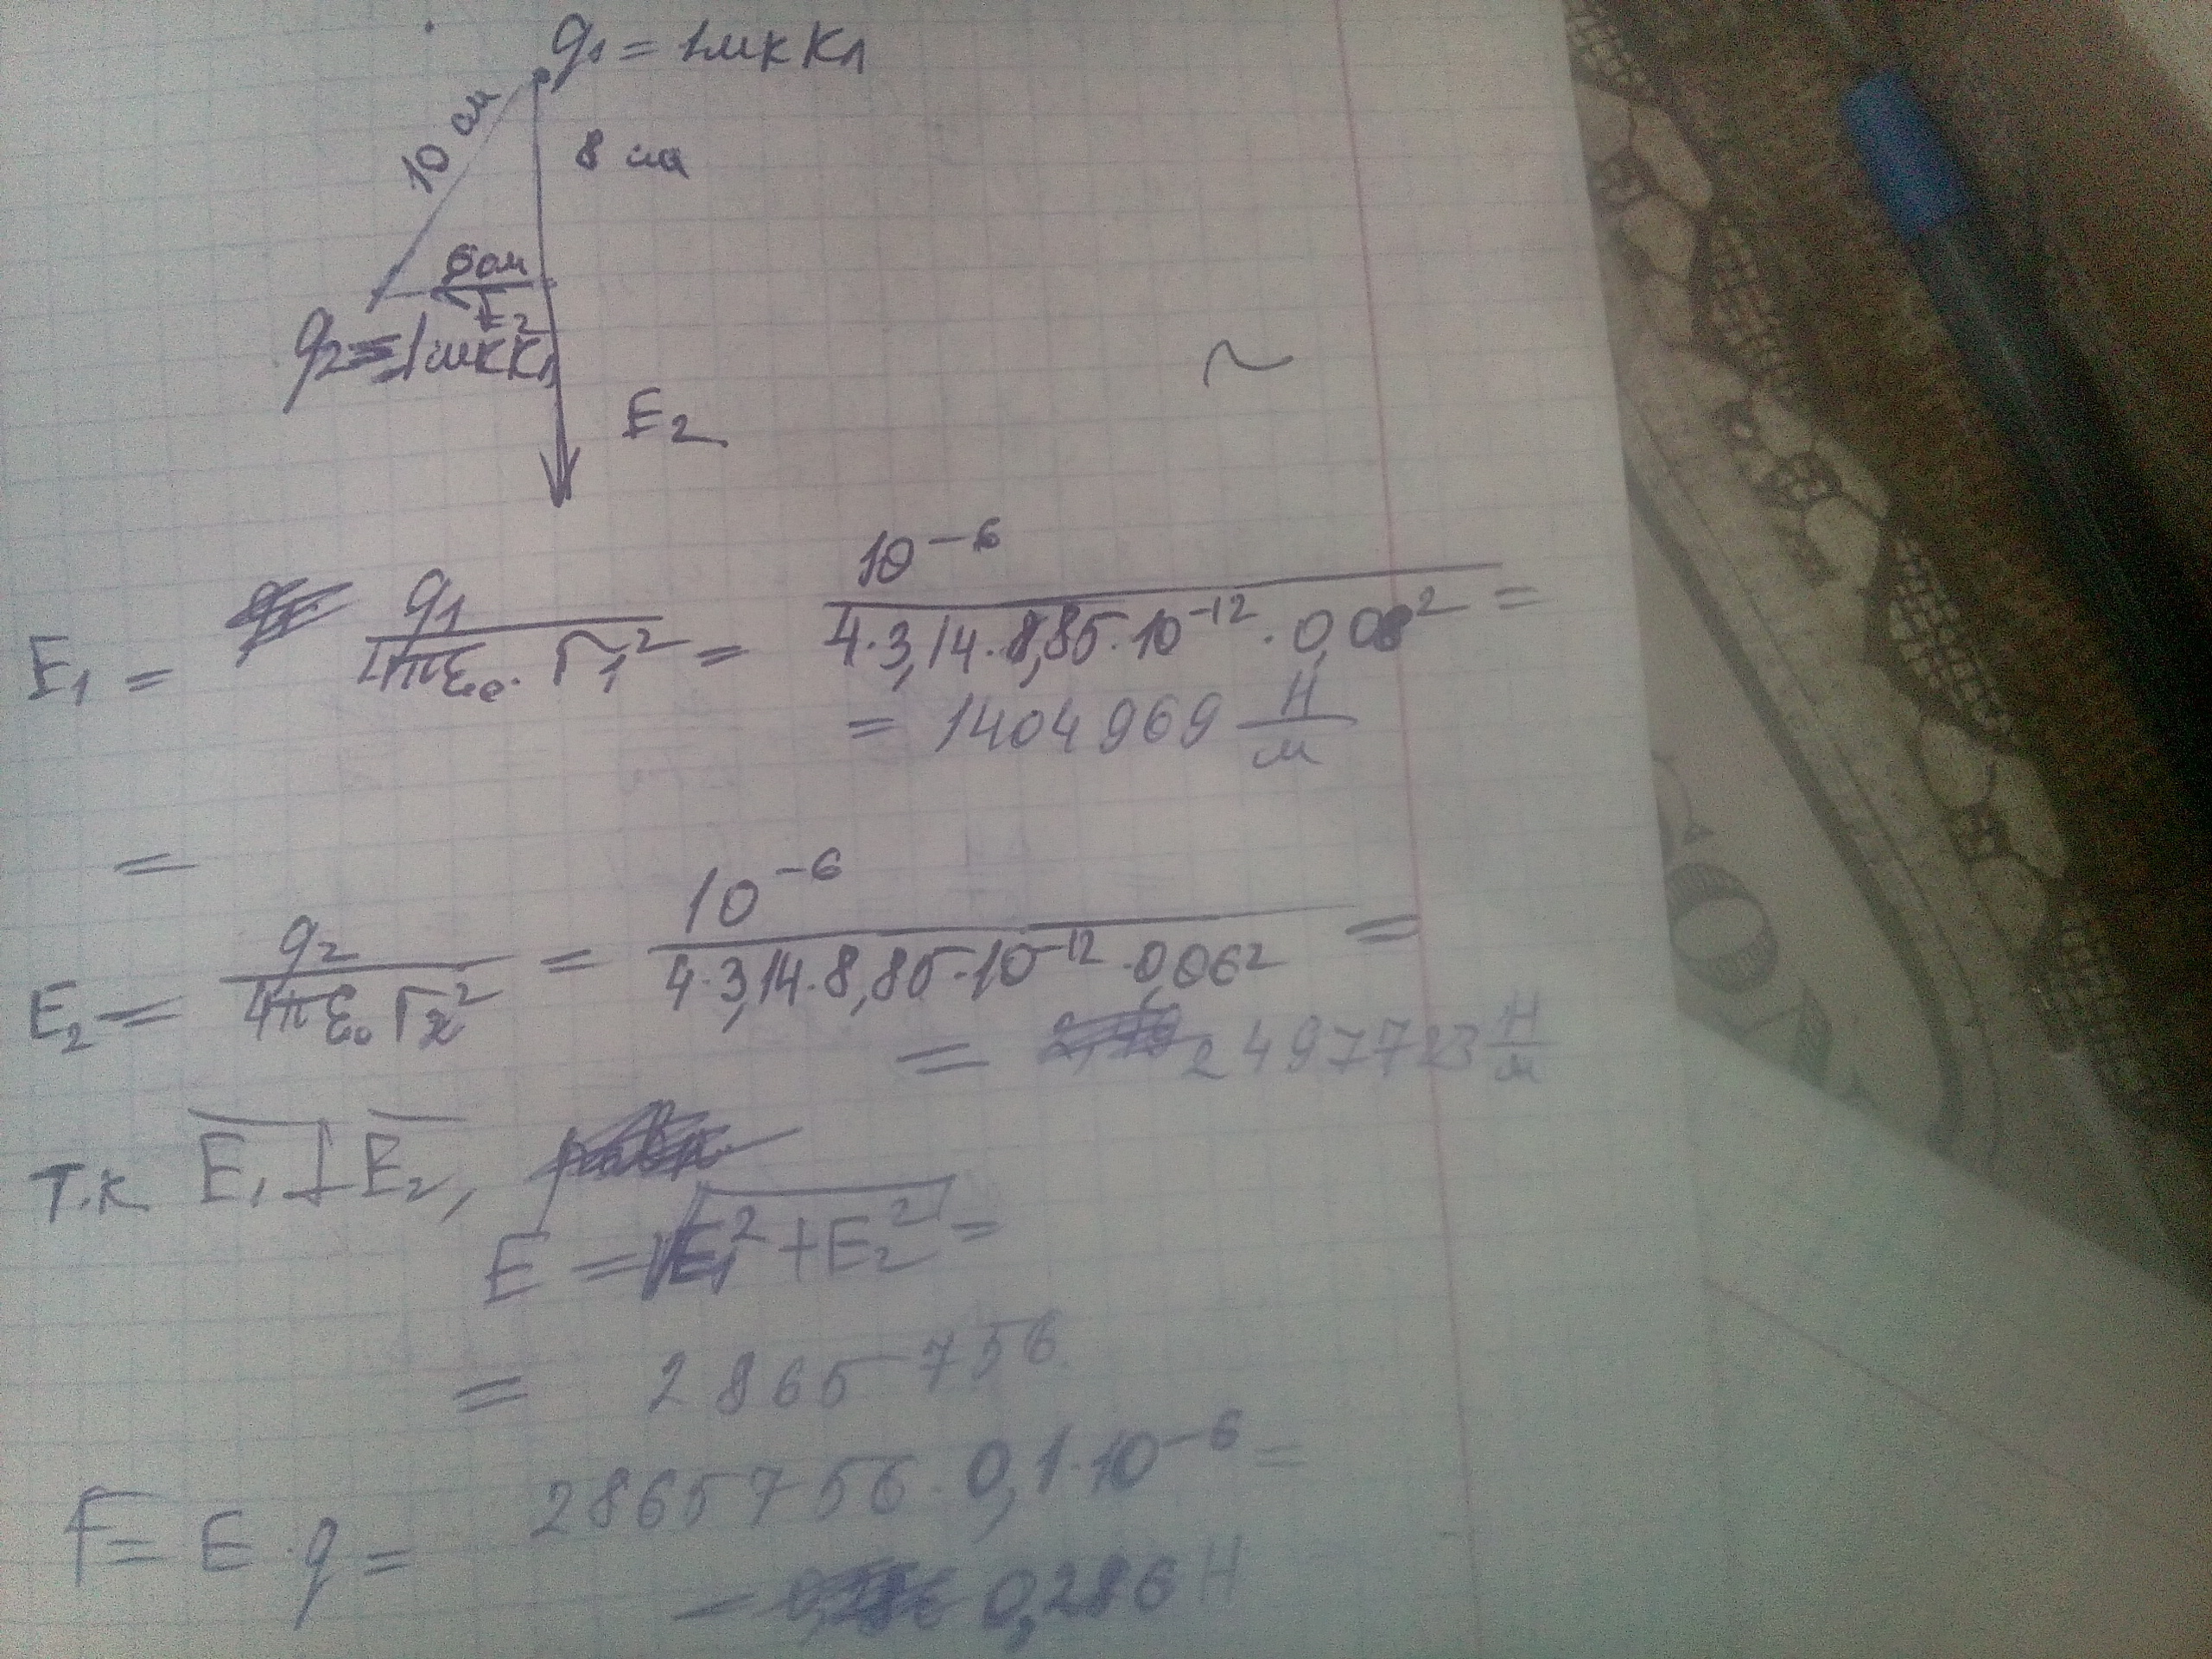 q₁ = 1 мкКл
10 см
8 см
6 см
E₂
q₂ = -1 мкКл
E₂
E₁ = q₁ / (4πε₀ · r₁²) = 10⁻⁶ / (4 · 3,14 · 8,85 · 10⁻¹² · 0,08²) =
= 1404969 Н/м
=
E₂ = q₂ / (4πε₀ r₂²) = 10⁻⁶ / (4 · 3,14 · 8,85 · 10⁻¹² · 0,06²) =
= 2497723 Н/м
т.к E₁ ⊥ E₂,
E = √(E₁² + E₂²) =
= 2865756
F = E · q = 2865756 · 0,1 · 10⁻⁶ =
= 0,286 Н